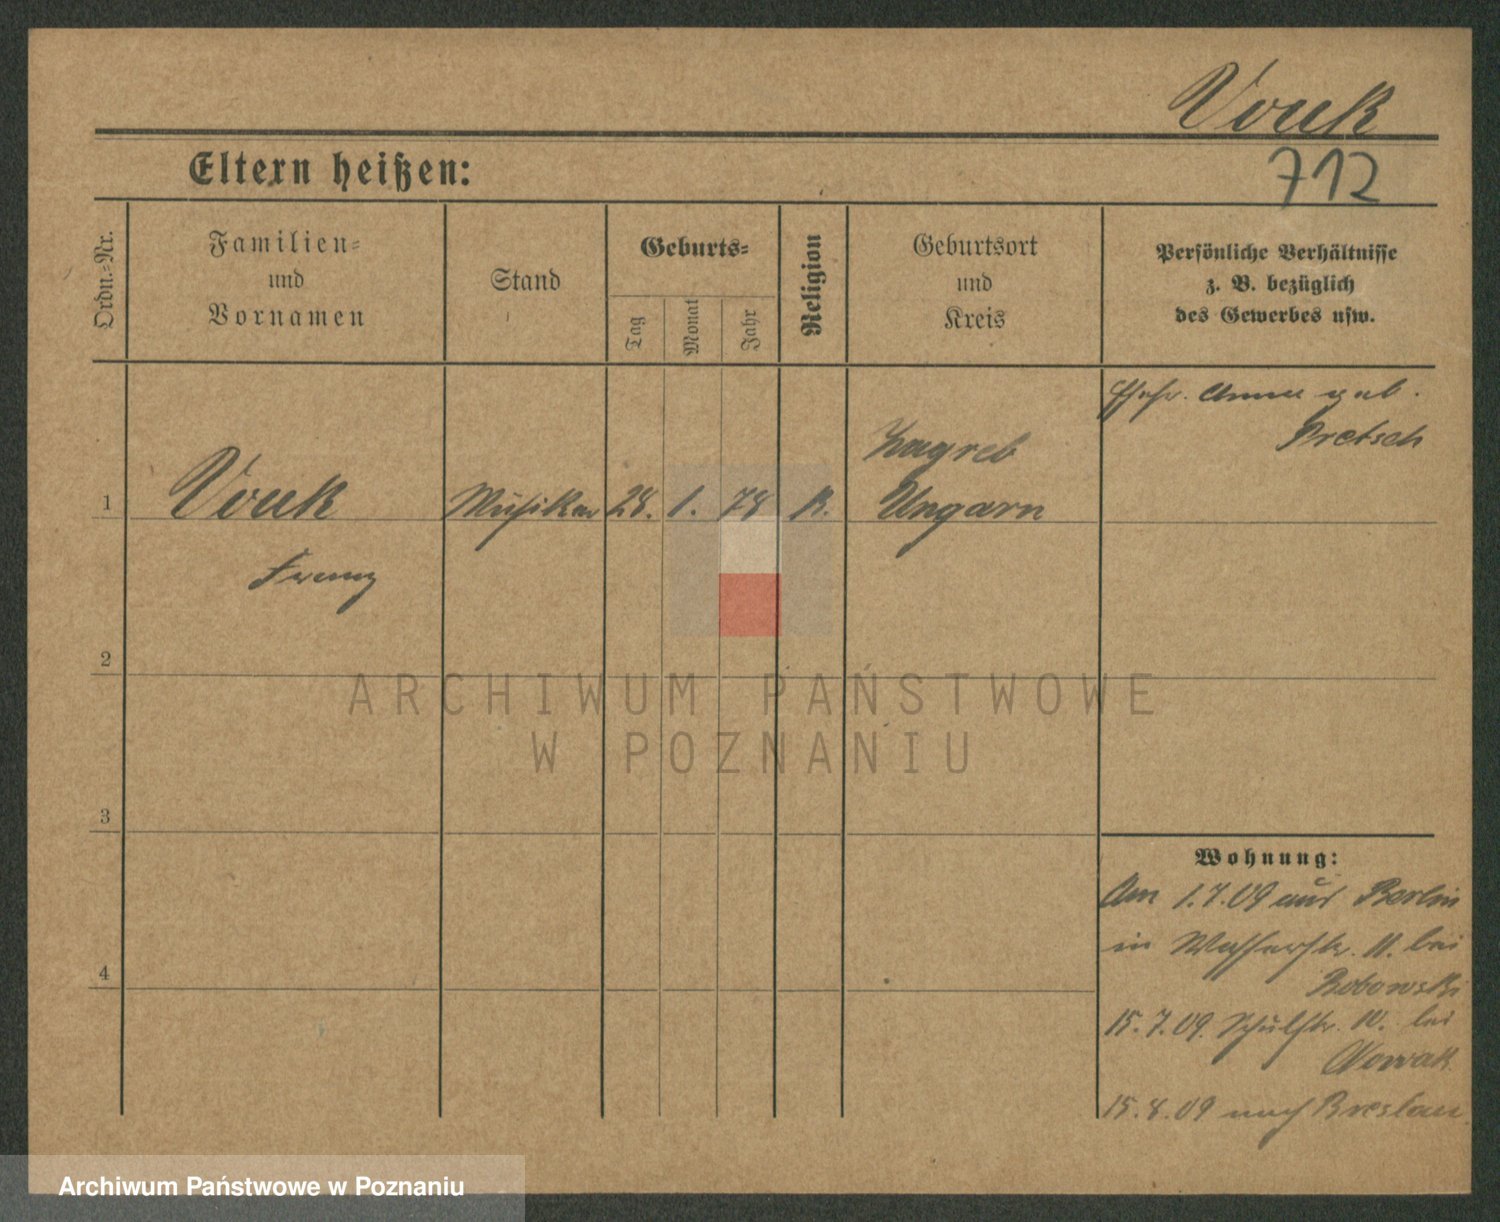 Vouk
712
Eltern heißen:
Ordn.-Nr.
Familien-
und
Vornamen
Stand
Geburts-
Tag
Monat
Jahr
Religion
Geburtsort
und
Kreis
Persönliche Verhältnisse
z. B. bezüglich
des Gewerbes usw.
Ehefr. Anna geb.
Pretsch
Zagreb
1 Vouk Musiker 28. 1. 78 K. Ungarn
Franz
2
3
4
Wohnung:
Am 1.7.09 aus Berlin
in Wasserstr. 11. bei
Bobowski
15.7.09. Schulstr. 10. bei
Nowak
15.8.09 nach Breslau
ARCHIWUM PAŃSTWOWE
W POZNANIU
Archiwum Państwowe w Poznaniu